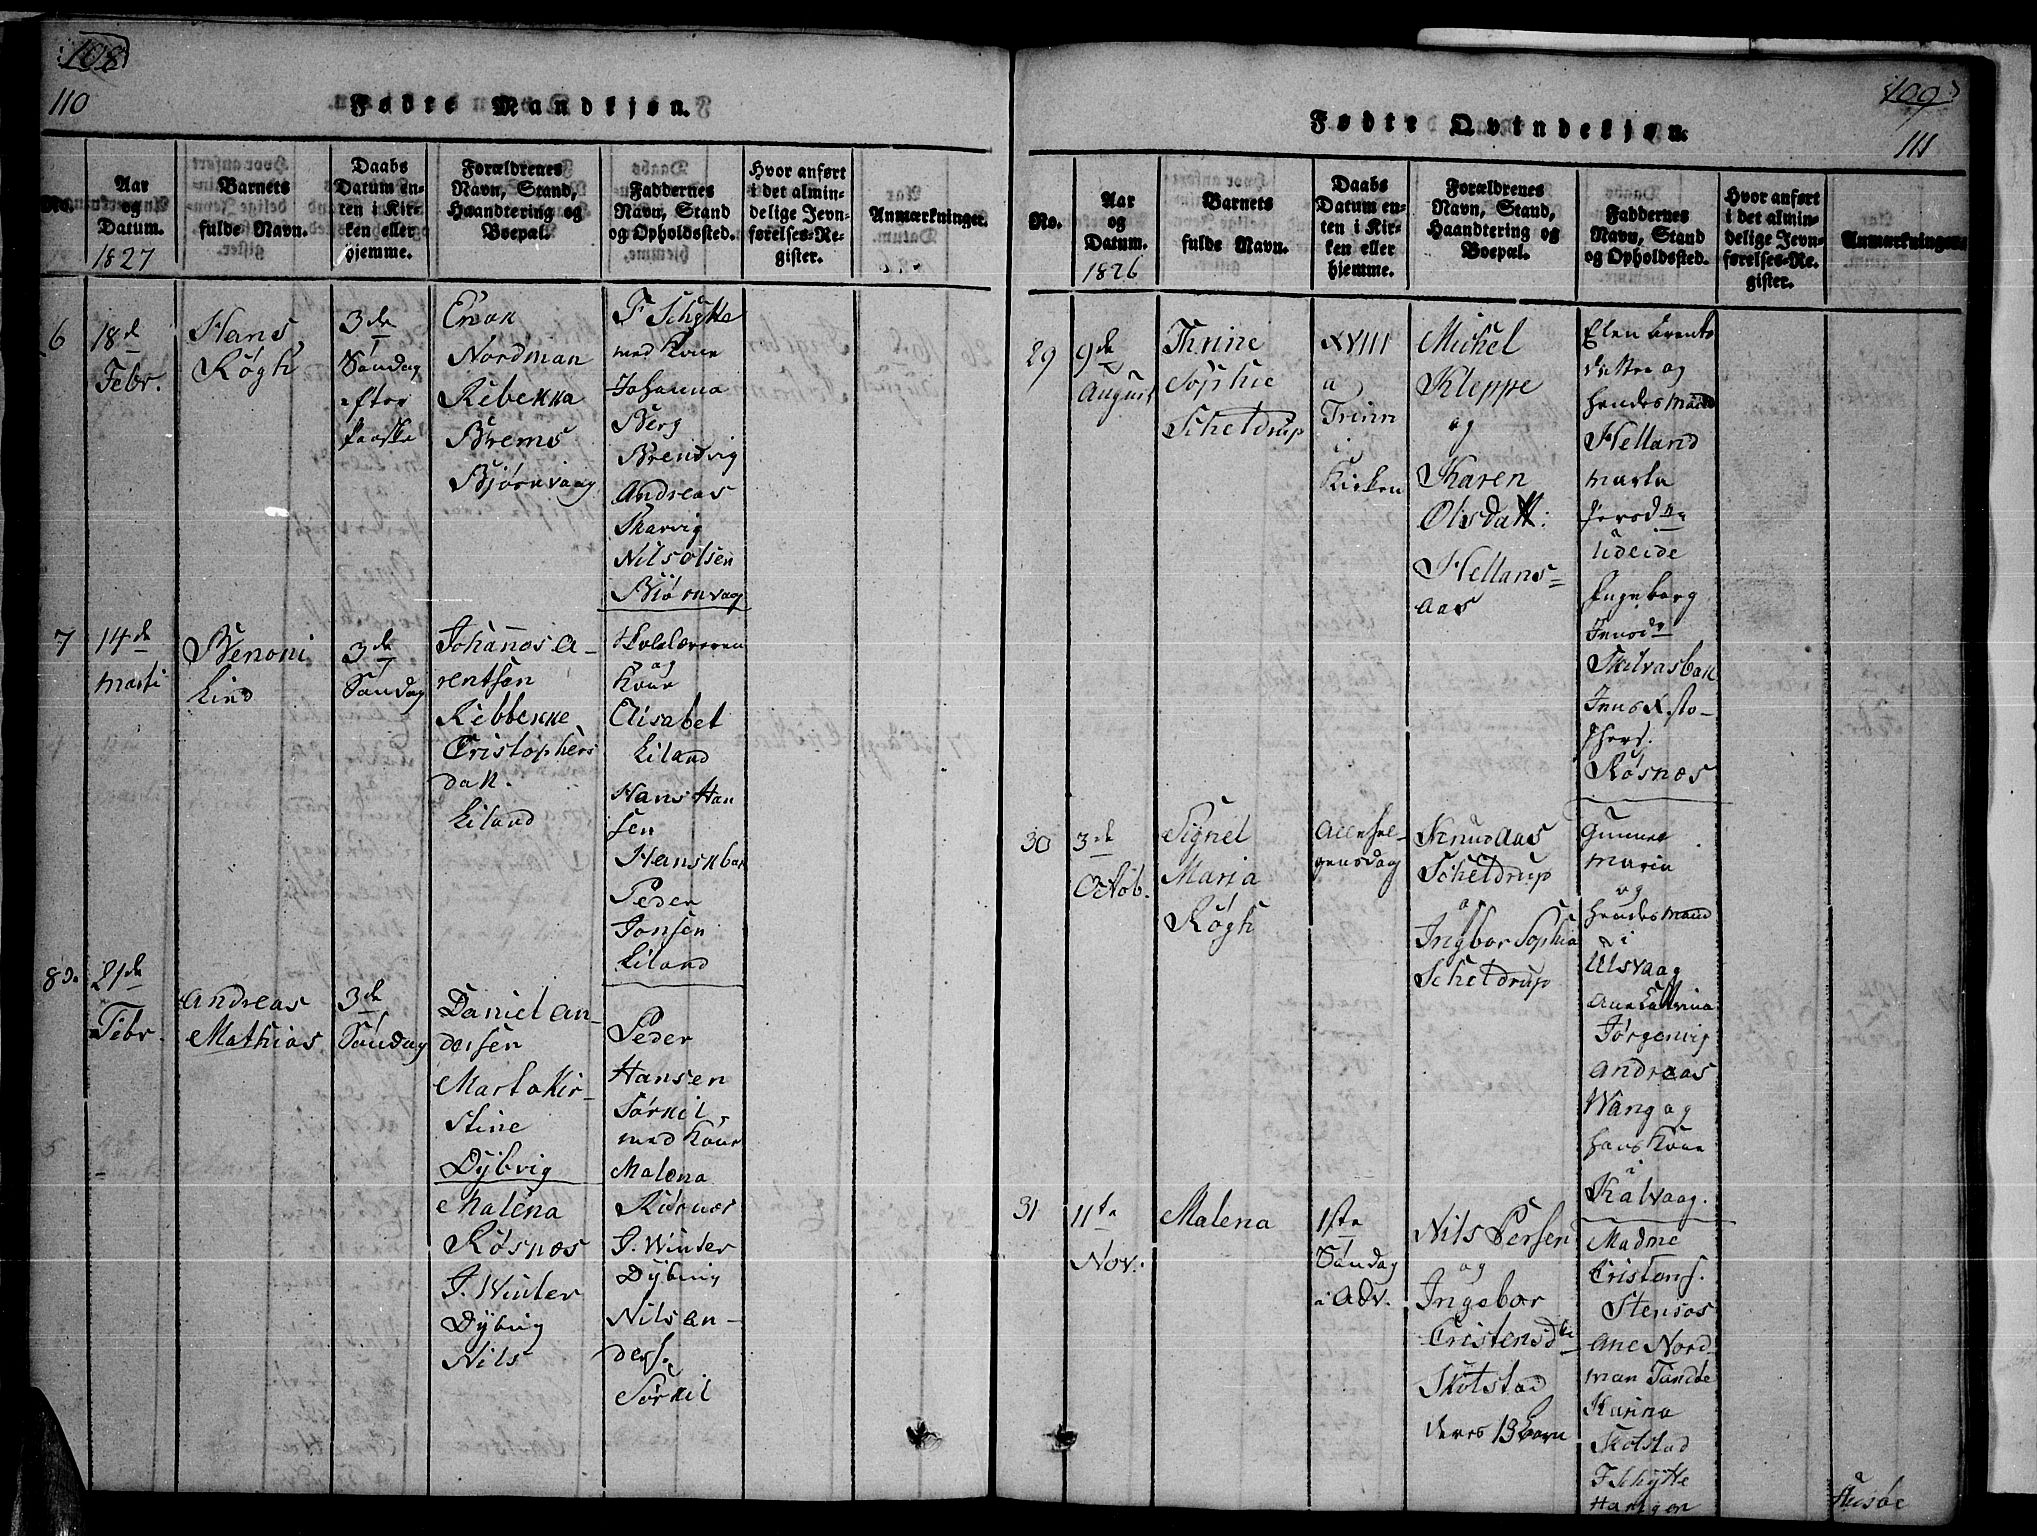 108
110
Fødte Mandkjøn.
No.
Aar
og
Datum.
1827
Barnets
fulde Navn.
Daabs
Datum en-
ten i Kir-
ken eller
hjemme.
Forældrenes
Navn, Stand,
Haandtering og
Boepæl.
Faddernes
Navn, Stand
og Opholdssted.
Hvor anført
i det almin-
delige Jevn-
førelses-Re-
gister.
Anmærkninger.
6
18de
Febr.
Hans
Røgh
3de
Søndag
efter
Paaske
Enok
Nordman
Rebekka
Brems
Bjørnvaag
F Schÿtte
med Kone
Johanna
Berg
Brendvig
Andreas
Skarvig
Nils Olsen
Biørnvag
7
14de
Marti
Benoni
Lind
3de
Søndag
Johannes A-
rentsen
Ribbekke
Cristophers
datt.
Liland
Skolelæreren
og
Kone
Elisabet
Liland
Hans Han
sen
Hanskbak
Peder
Jonsen
Liland
8
21de
Febr.
Andreas
Mathias
3de
Søndag
Daniel An-
dersen
Marta Kir-
stine
Dÿbvig
Malena
Røsnæs
J. Winter
Dÿbvig
Nils
Peder
Hansen
Sørkil
med Kone
Malena
Røsnæs
J. Winter
Dÿbvig
Nils An-
ders.
Sørkil
109
111
Fødte Qvindekjøn.
No.
Aar
og
Datum.
1826
Barnets
fulde Navn.
Daabs
Datum en-
ten i Kir-
ken eller
hjemme.
Forældrenes
Navn, Stand,
Haandtering og
Boepæl.
Faddernes
Navn, Stand
og Opholdssted.
Hvor anført
i det almin-
delige Jevn-
førelses-Re-
gister.
Anmærkninger.
29
9de
August
Thrine
Sophie
Scheldrup
XVIII
a
Trinn
i
Kirken
Michel
Kleppe
og
Karen
Olsdatt:
Hellans-
aas
Elen Arents
datter og
hendes Mand
Helland
Marta
Persd
Udeide
Ingeborg
Jensdr
Skilvasbak
Jens X sto-
phers.
Røsnæs
30
3de
Octob.
Signel
Maria
Røgh
Allehel-
gensdag
Knud Aas
Scheldrup
og
Ingbor Sophia
Scheldrup
Gunner
Maria
og
hendes Mand
i
Ulsvaag
Ane Catrina
Jørgenvig
Andreas
Wang og
hans Kone
i
Kalvaag.
31
11te
Nov.
Malena
1ste
Søndag
i Adv.
Nils Persen
og
Ingebor
Cristensd
Skotstad
deres 13 barn
Madme
Cristens.
Stensos
Ane Nord-
man Tandte
Karina
Skotstad
F Schÿtte
Husøe